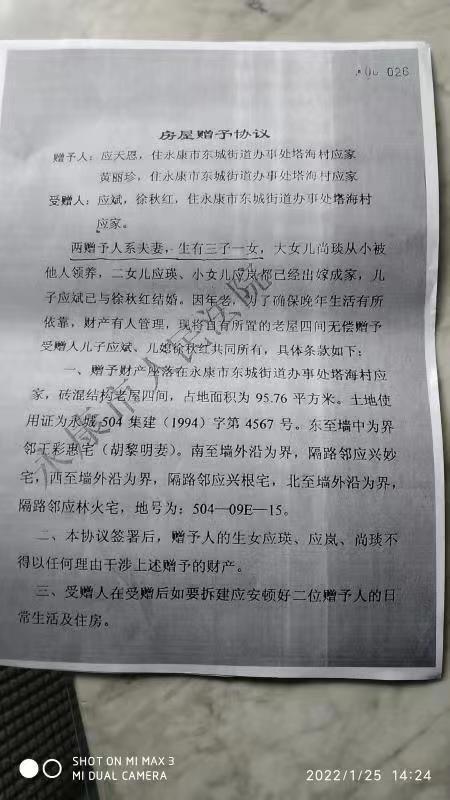 026
房屋赠予协议
赠予人：应天恩，住永康市东城街道办事处塔海村应家
黄丽珍，住永康市东城街道办事处塔海村应家
受赠人：应斌，徐秋红，住永康市东城街道办事处塔海村
应家。
两赠予人系夫妻，生有三子一女，大女儿尚琰从小被
他人领养，二女儿应瑛、小女儿应岚都已经出嫁成家，儿
子应斌已与徐秋红结婚。因年老，为了确保晚年生活有所
依靠，财产有人管理，现将自有所置的老屋四间无偿赠予
受赠人儿子应斌、儿媳徐秋红共同所有，具体条款如下：
一、赠予财产座落在永康市东城街道办事处塔海村应
家，砖混结构老屋四间，占地面积为 95.76 平方米。土地使
用证为永城 504 集建（1994）字第 4567 号。东至墙中为界
邻王彩惠宅（胡黎明妻）。南至墙外沿为界，隔路邻应兴妙
宅，西至墙外沿为界，隔路邻应兴根宅，北至墙外沿为界，
隔路邻应林火宅，地号为：504—09E—15。
二、本协议签署后，赠予人的生女应瑛、应岚、尚琰不
得以任何理由干涉上述赠予的财产。
三、受赠人在受赠后如要拆建应安顿好二位赠予人的日
常生活及住房。
永康市人民法院
SHOT ON MI MAX 3
MI DUAL CAMERA
2022/1/25 14:24